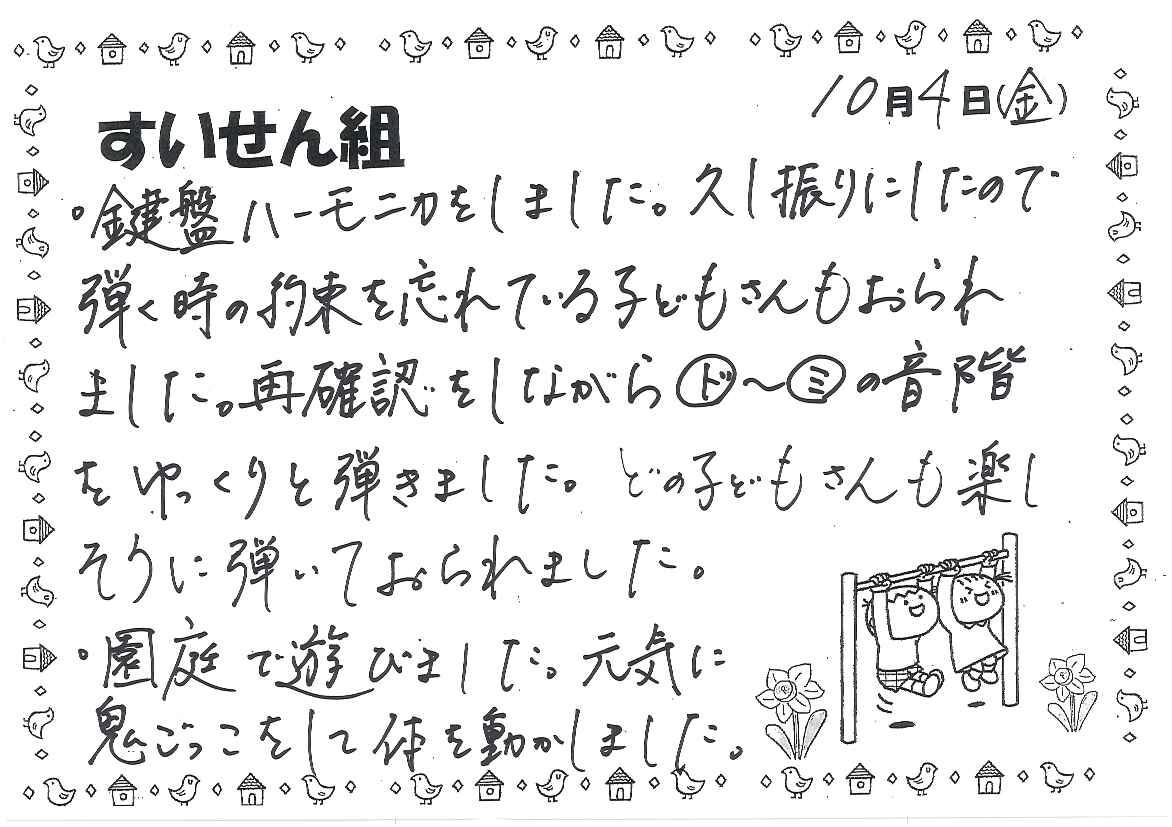 10月4日(金)
すいせん組
・鍵盤ハーモニカをしました。久し振りにしたので
弾く時の約束を忘れている子どもさんもおられ
ました。再確認をしながらド〜ミの音階
をゆっくりと弾きました。どの子どもさんも楽し
そうに弾いておられました。
・園庭で遊びました。元気に
鬼ごっこをして体を動かしました。